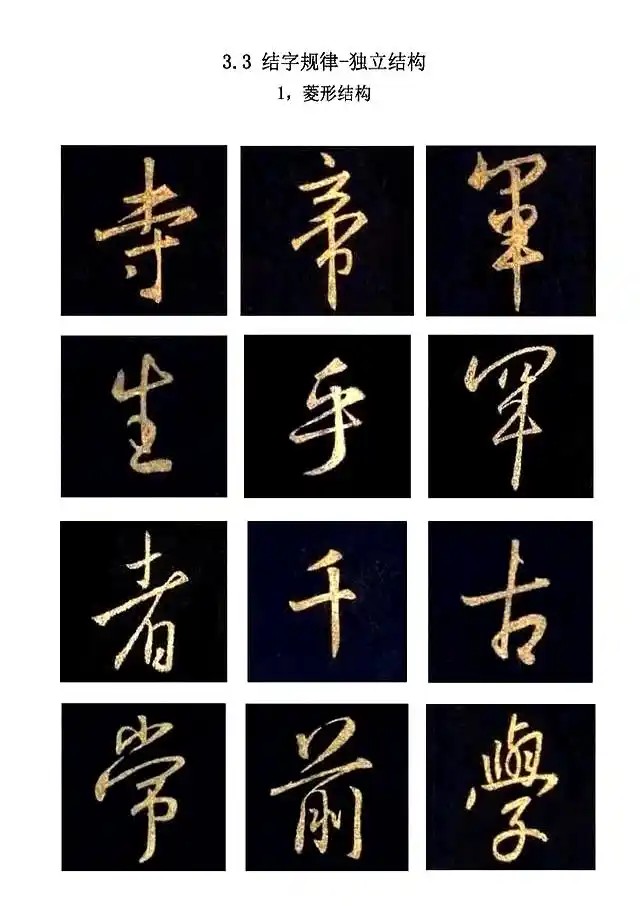 3.3 结字规律-独立结构
1，菱形结构
寺 帝 軍
生 乎
者 千 古
常 前 學